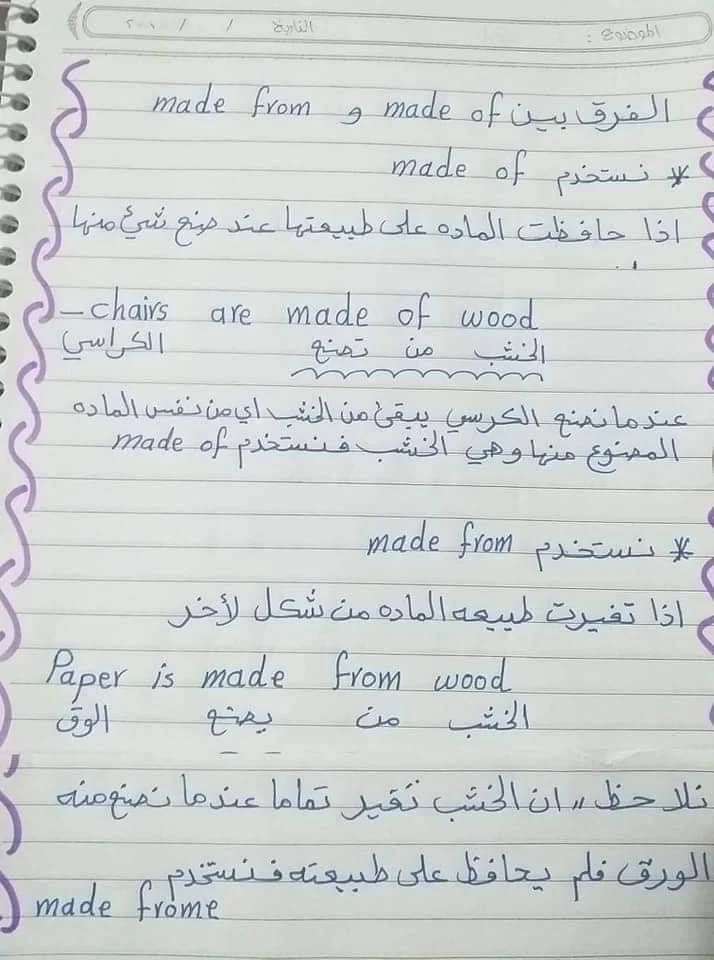 الموضوع : التاريخ / / ٢٠٠
الفرق بين made of و made from
* نستخدم made of
اذا حافظت الماده على طبيعتها عند صنع شئ منها
_ chairs are made of wood
الكراسي تصنع من الخشب
عندما نصنع الكرسي يبقئ من الخشب اي من نفس الماده
المصنوع منها وهي الخشب فنستخدم made of
* نستخدم made from
اذا تغيرت طبيعه الماده من شكل لأخر
Paper is made from wood
الوق يصنع من الخشب
نلاحظ ,, ان الخشب تغير تماما عندما نصنع منه
الورق فلم يحافظ على طبيعته فنستخدم
made frome